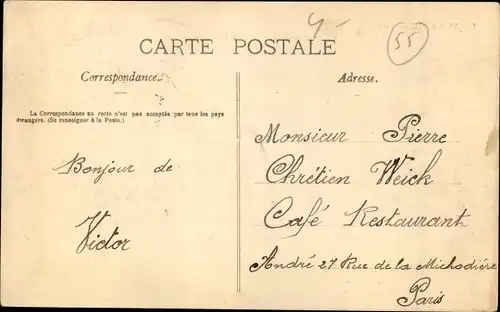 4-
55
CARTE POSTALE
Correspondance.
Adresse.
La Correspondance au recto n'est pas acceptée par tous les pays
étrangers. (Se renseigner à la Poste.)
Bonjour de
Victor
Monsieur Pierre
Chrétien Weick
Café Restaurant
André 27 Rue de la Michodière
Paris